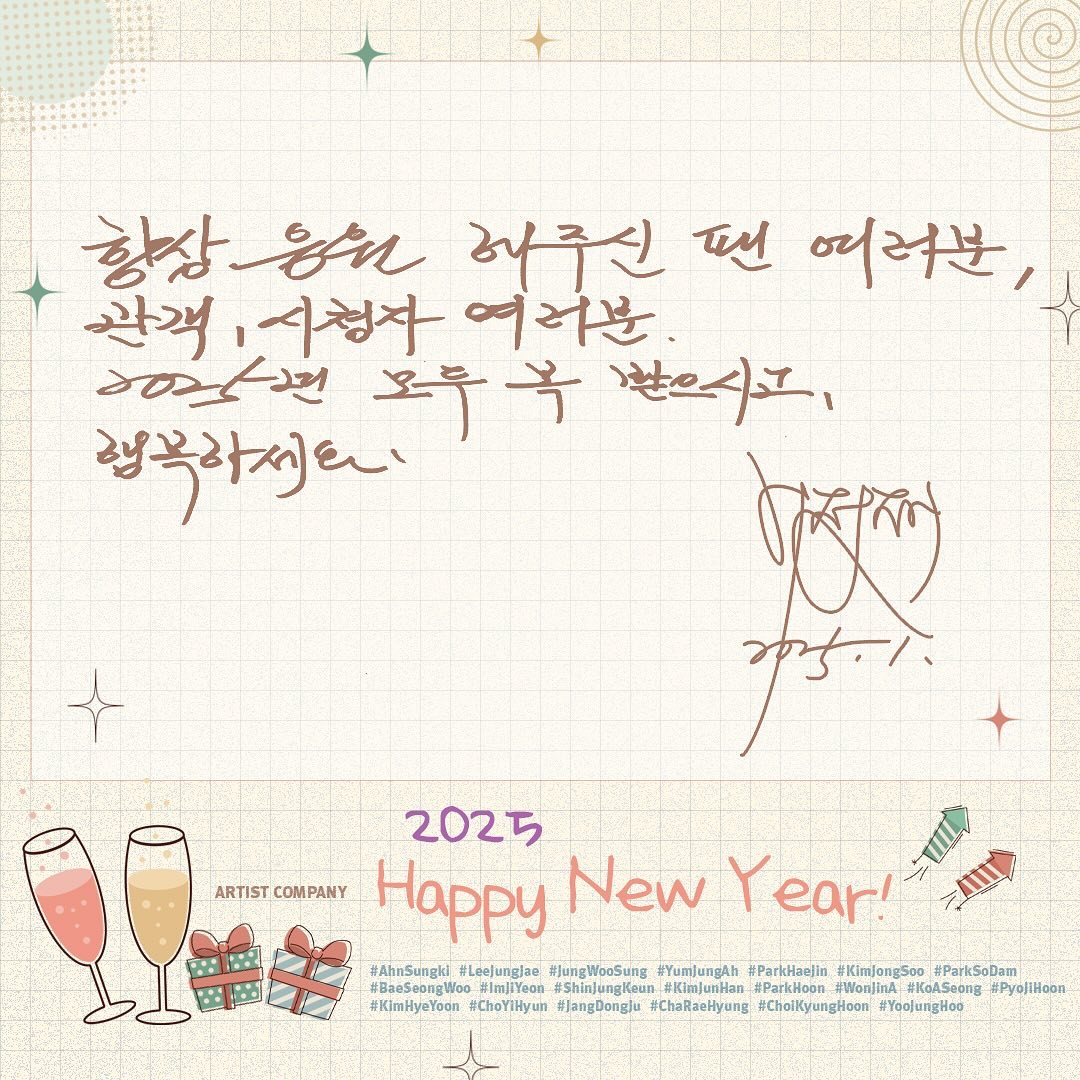 항상 응원 해주신 팬 여러분,
관객, 시청자 여러분.
2025년 모두 복 받으시고,
행복하세요.
2025. 1.
2025
Happy New Year!
ARTIST COMPANY
#AhnSungki #LeeJungJae #JungWooSung #YumJungAh #ParkHaeJin #KimJongSoo #ParkSoDam
#BaeSeongWoo #ImJiYeon #ShinJungKeun #KimJunHan #ParkHoon #WonJinA #KoASeong #PyoJiHoon
#KimHyeYoon #ChoYiHyun #JangDongJu #ChaRaeHyung #ChoiKyungHoon #YooJungHoo